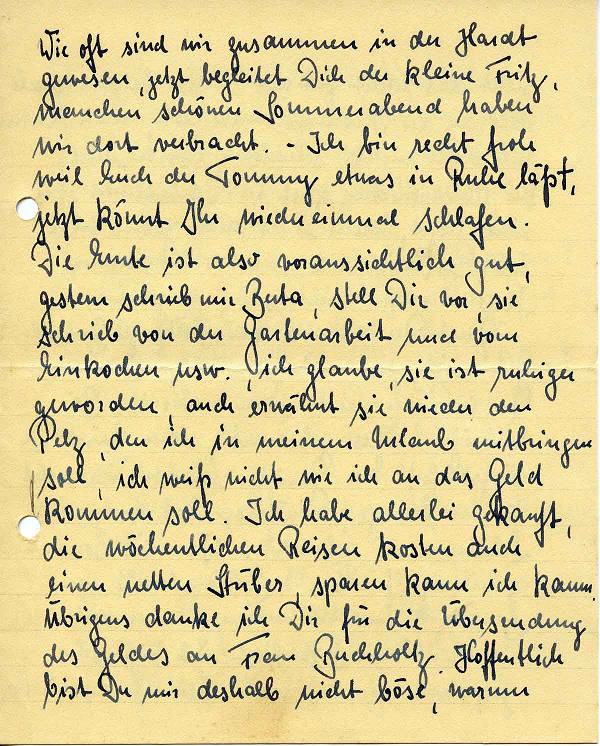 Wie oft sind wir zusammen in der Hardt
gewesen, jetzt begleitet Dich der kleine Fritz,
manchen schönen Sommerabend haben
wir dort verbracht. - Ich bin recht froh
weil Euch der Tommy etwas in Ruhe läßt,
jetzt könnt Ihr wiedereinmal schlafen.
Die Ernte ist also voraussichtlich gut,
gestern schrieb mir Berta, stell Dir vor, sie
schrieb von der Gartenarbeit und vom
Einkochen usw., ich glaube, sie ist ruhiger
geworden, auch erwähnt sie wieder den
Pelz, den ich in meinem Urlaub mitbringen
soll, ich weiß nicht wie ich an das Geld
kommen soll. Ich habe allerlei gekauft,
die wöchentlichen Reisen kosten auch
einen netten Stüber, sparen kann ich kaum.
Übrigens danke ich Dir für die Übersendung
des Geldes an Frau Buchholtz. Hoffentlich
bist Du mir deshalb nicht böse, warum